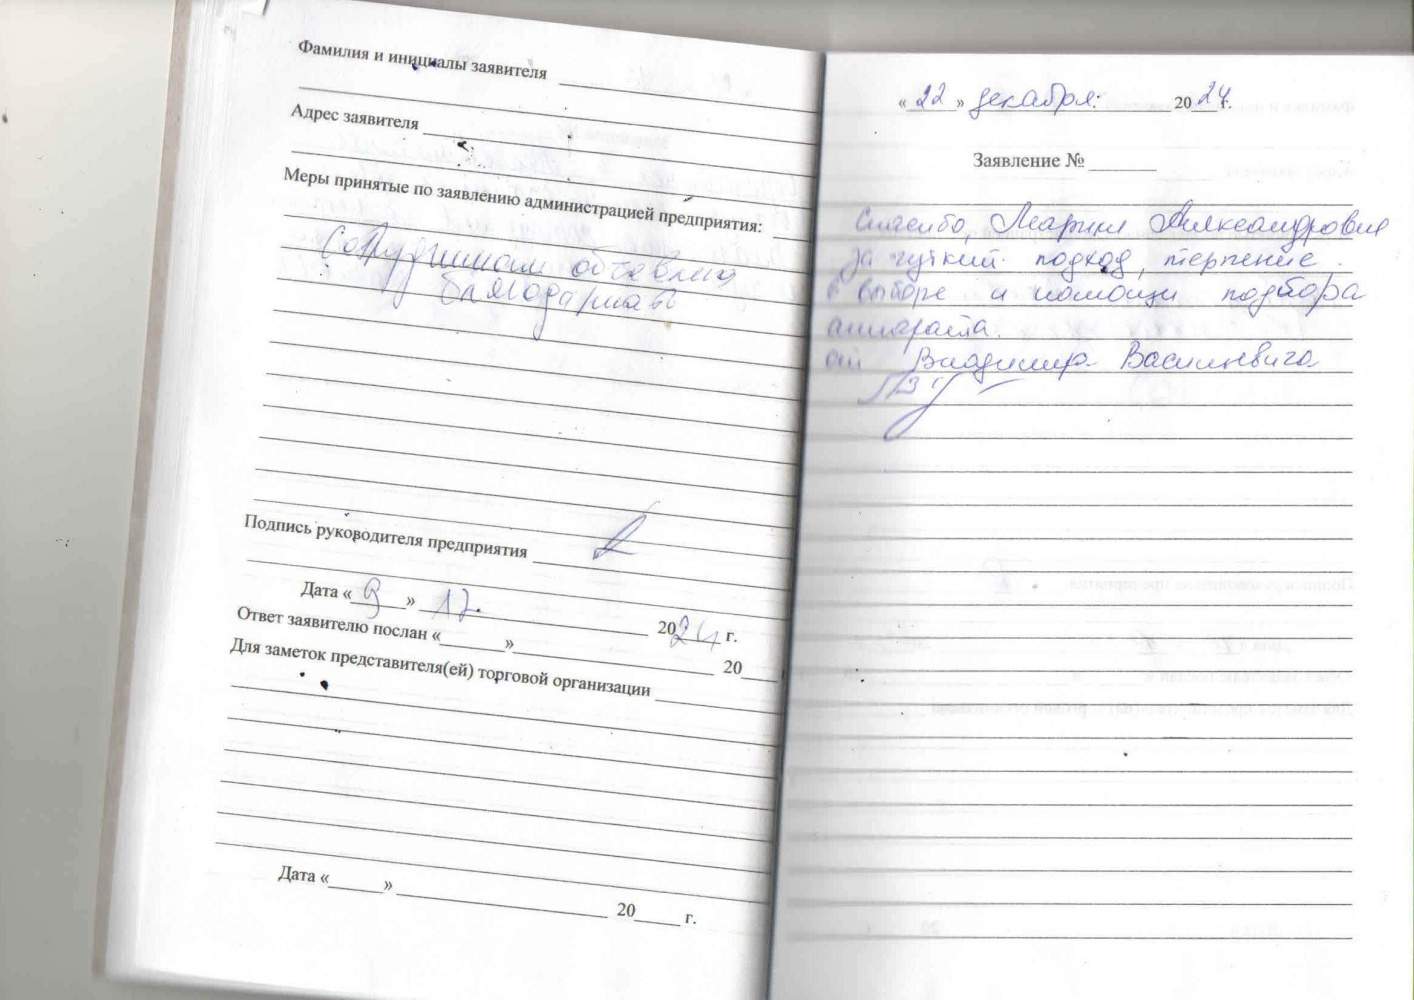 Фамилия и инициалы заявителя
Адрес заявителя
Меры принятые по заявлению администрацией предприятия:
Сотрудникам объявлена
благодарность
Подпись руководителя предприятия
Дата « 9 » 12. 2024 г.
Ответ заявителю послан «______» 20____
Для заметок представителя(ей) торговой организации
Дата «______» 20_____ г.
« 22 » декабря 2024 г.
Заявление №
Спасибо, Марине Александровне
за чуткий подход, терпение
в выборе и помощи подбора
аппарата.
от Владимира Васильевича